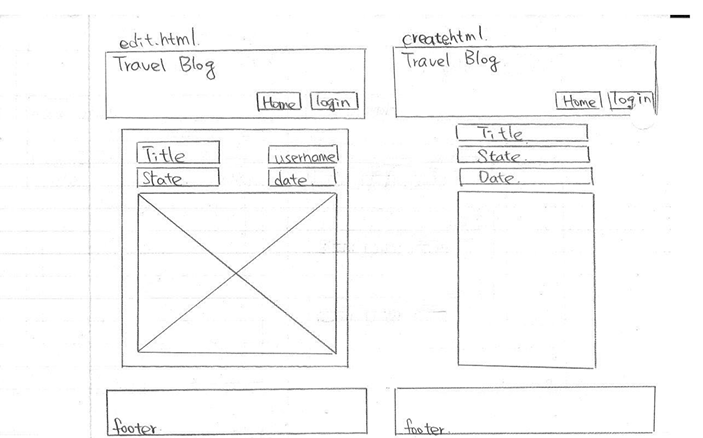 edit.html.
Travel Blog
Home login
Title username
State date.
footer.
createhtml.
Travel Blog
Home login
Title
State.
Date.
footer.